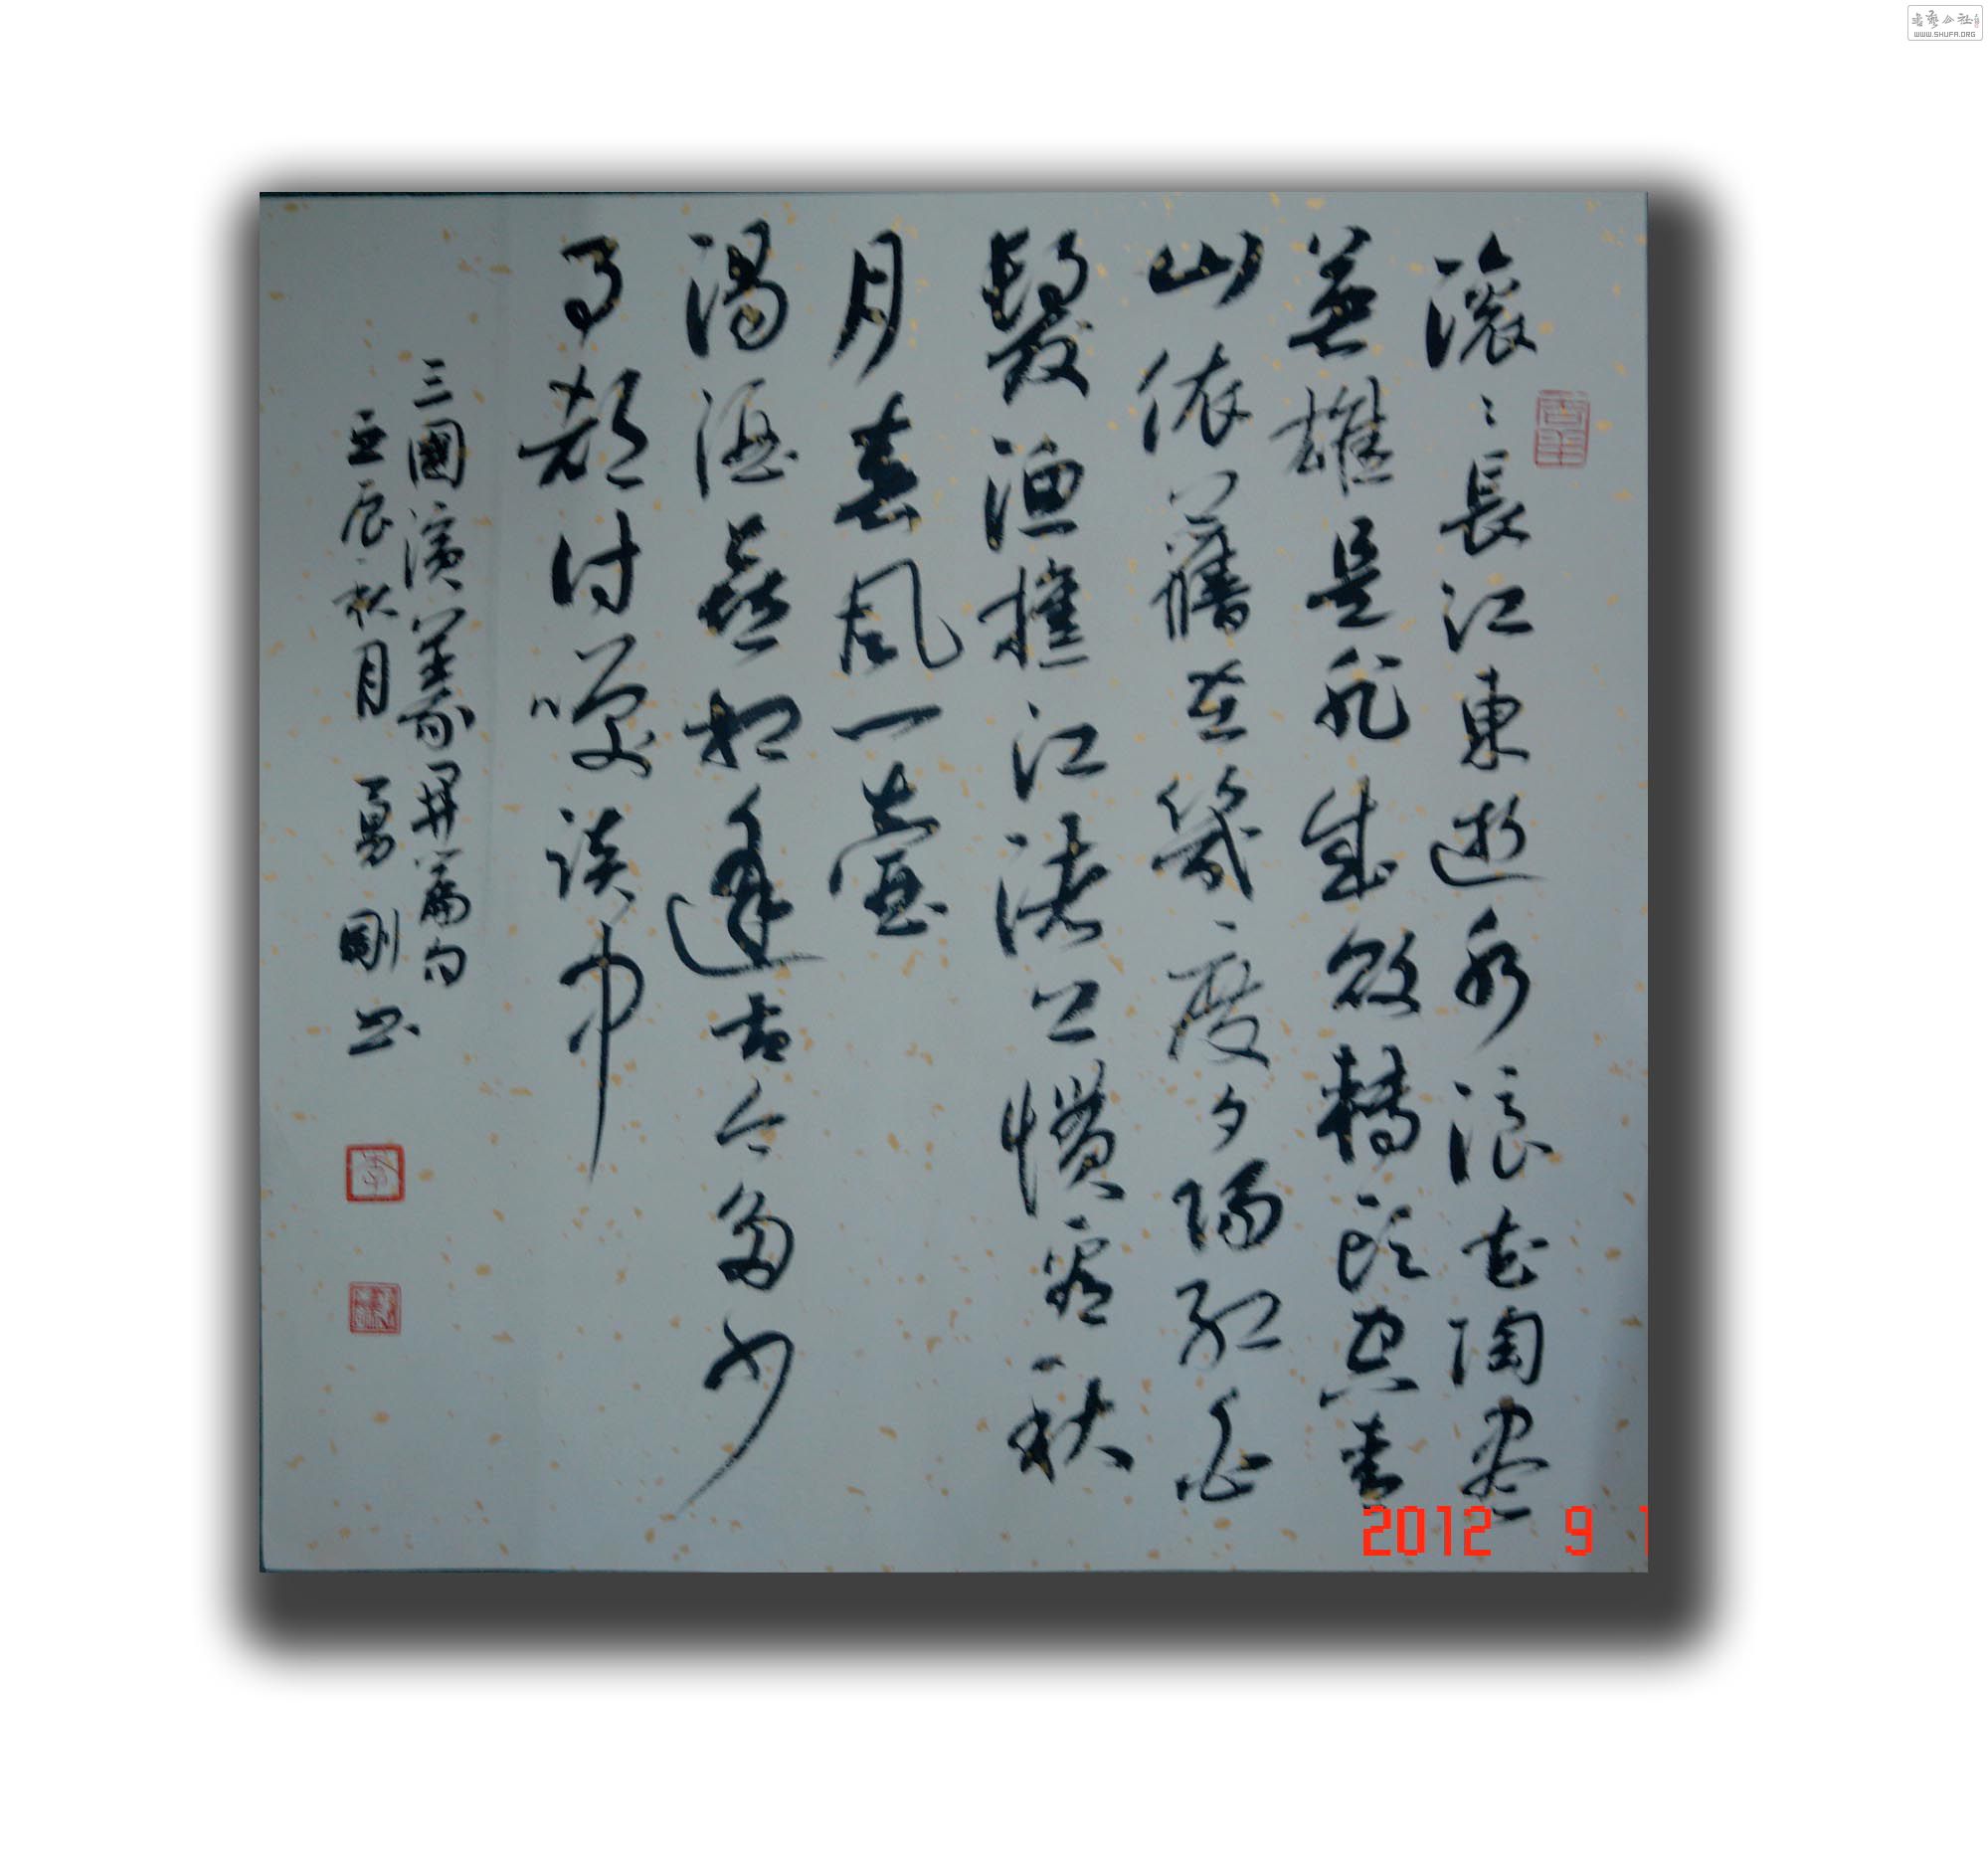 滚々長江東逝水浪花陶盡
英雄是非成敗轉頭空青
山依舊在幾度夕陽紅白
髮漁樵江渚上慣看秋
月春風一壺
濁酒喜相逢古今多少
事都付笑談中
三國演義開篇句
壬辰秋月勇剛书
2012 9 1
书艺公社
WWW.SHUFA.ORG